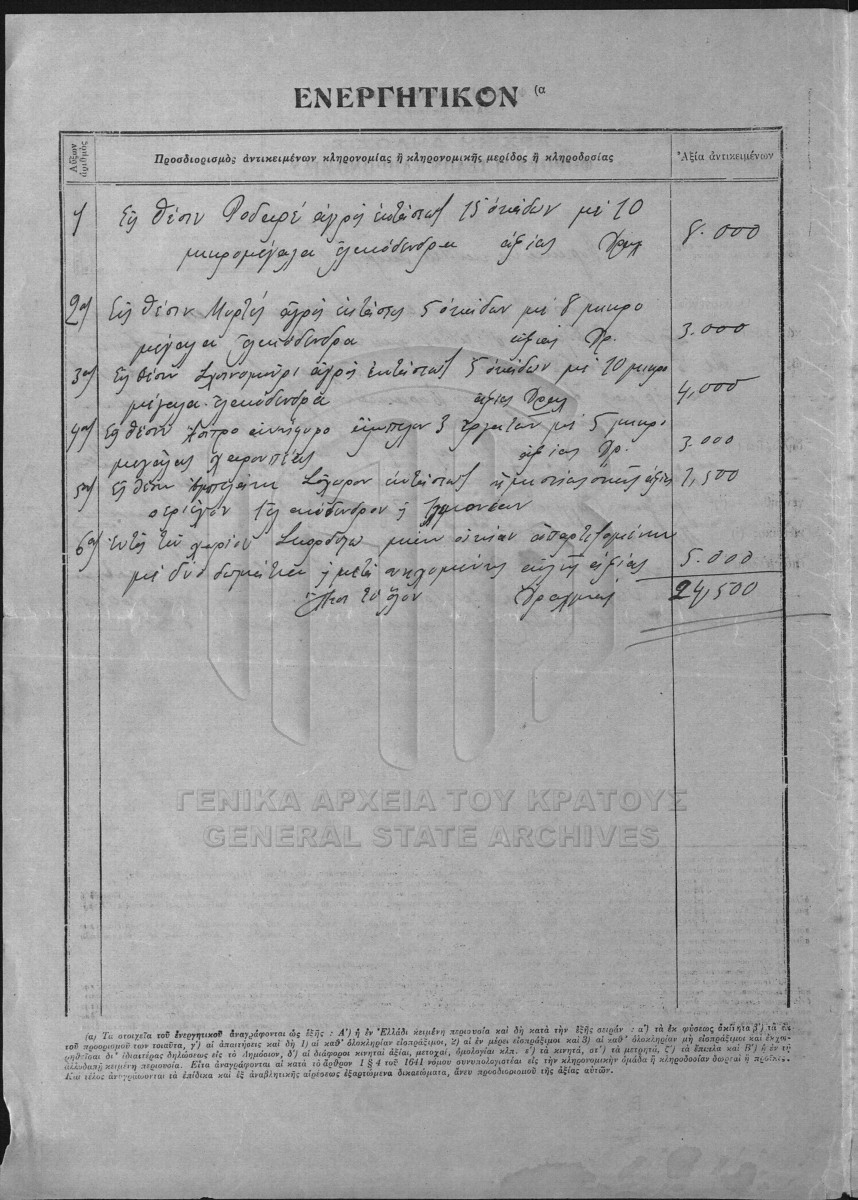 ΕΝΕΡΓΗΤΙΚΟΝ (α
Αὔξων ἀριθμὸς
Προσδιορισμὸς ἀντικειμένων κληρονομίας ἢ κληρονομικῆς μερίδος ἢ κληροδοσίας
Ἀξία ἀντικειμένων
1 Εἰς θέσιν ἀγρὸς ἐκτάσεως 15 ὀκάδων μὲ 10
μικρομέγαλα ἐλαιόδενδρα ἀξίας Δραχ 8.000
2α) Εἰς θέσιν Μυρτιὲς ἀγρὸς ἐκτάσεως 5 ὀκάδων μὲ 8 μικρο
μέγαλα ἐλαιόδενδρα ἀξίας Δρ. 3.000
3α) Εἰς θέσιν ἀγρὸς ἐκτάσεως 5 ὀκάδων μὲ 10 μικρο
μέγαλα ἐλαιόδενδρα ἀξίας Δραχ 4,000
4α) Εἰς θέσιν Ἄσπρο ἄμπελον 3 ἐργατῶν μὲ 5 μικρο
μεγάλας χαρουπέας ἀξίας Δρ. 3.000
5α) Εἰς θέσιν ἐκτάσεως ἡμισείας ὀκᾶς ἀξίας 1,500
ἐλαιόδενδρον
6α) Ἐντὸς τοῦ χωρίου μίαν οἰκίαν ἀπαρτιζομένην
μὲ δύο δωμάτια μετὰ αὐλῆς ἀξίας 5.000
τὸ ὅλον Δραχμαί 24,500
ΓΕΝΙΚΑ ΑΡΧΕΙΑ ΤΟΥ ΚΡΑΤΟΥΣ
GENERAL STATE ARCHIVES
(α) Τα στοιχεῖα τοῦ ἐνεργητικοῦ ἀναγράφονται ὡς ἑξῆς : Α') ἡ ἐν Ἑλλάδι κειμένη περιουσία καὶ δὴ κατὰ τὴν ἑξῆς σειράν : α') τὰ ἐκ φύσεως ἀκίνητα β') τὰ ἐκ
τοῦ προορισμοῦ των τοιαῦτα, γ') αἱ ἀπαιτήσεις καὶ δὴ 1) αἱ καθ' ὁλοκληρίαν εἰσπράξιμοι, 2) αἱ ἐν μέρει εἰσπράξιμοι καὶ 3) αἱ καθ' ὁλοκληρίαν μὴ εἰσπράξιμοι καὶ ἐκχω-
ρηθεῖσαι δι' ἰδιαιτέρας δηλώσεως εἰς τὸ Δημόσιον, δ') αἱ διάφοροι κινηταὶ ἀξίαι, μετοχαί, ὁμολογίαι κλπ. ε') τὰ κινητά, στ') τὰ μετρητά, ζ') τὰ ἔπιπλα καὶ Β') ἡ ἐν τῇ
ἀλλοδαπῇ κειμένη περιουσία. Εἶτα ἀναγράφονται αἱ κατὰ τὸ ἄρθρον 1 § 4 τοῦ 1641 νόμου συνυπολογιστέαι εἰς τὴν κληρονομικὴν ὁμάδα ἢ κληροδοσίαν δωρεαὶ ἢ προῖκες.
Καὶ τέλος ἀναγράφονται τὰ ἐπίδικα καὶ ἐξ ἀναβλητικῆς αἱρέσεως ἐξαρτώμενα δικαιώματα, ἄνευ προσδιορισμοῦ τῆς ἀξίας αὐτῶν.